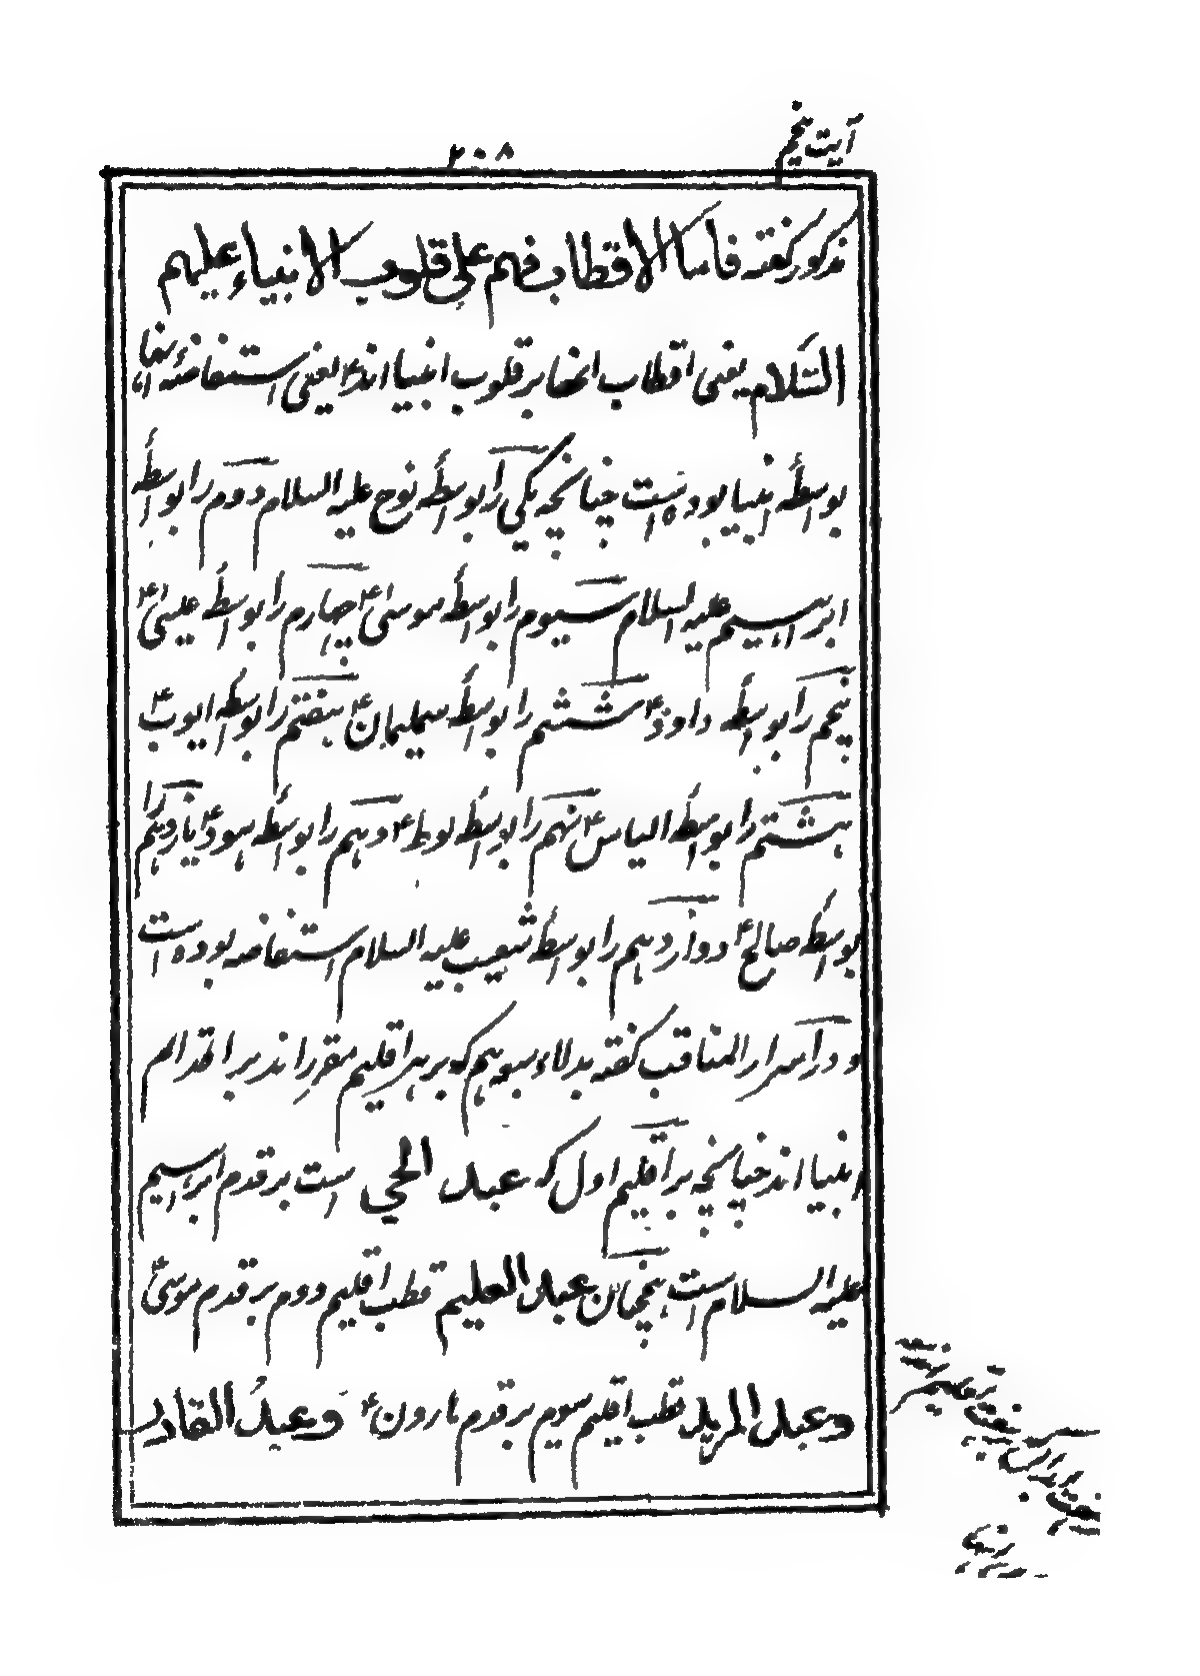 آیت پنجم
۲۰۸
مذکور گفته فاما الاقطاب فهم علی قلوب الانبیاء علیهم
السّلام یعنی اقطاب انها بر قلوب انبیا اند؏ یعنی استفاضهٔ اینها
بوسطهٔ انبیا بوده است چنانچه یکی را بوسطهٔ نوح علیه السلام دوم را بواسطهٔ
ابراهیم علیه السلام سیوم را بوسطهٔ موسیٰ؏ چهارم را بوسطهٔ عیسیٰ؏
پنجم را بوسطهٔ داود؏ ششم را بوسطهٔ سلیمان؏ هفتم را بوسطهٔ ایوب؏
هشتم را بوسطهٔ الیاس؏ نهم را بوسطهٔ لوط؏ دهم را بوسطهٔ هود؏ یازدهم را
بوسطهٔ صالح؏ دوازدهم را بوسطهٔ شعیب علیه السلام استفاضه بوده است
و در اسرار المناقب گفته بدلاء سبعه هم که بر هر اقلیم مقرر اند بر اقدام
انبیا اند چنانچه بر اقلیم اول که عبد الحی است بر قدم ابراهیم
علیه السلام است همچنان عبد العلیم قطب اقلیم دوم بر قدم موسیٰ؏
و عبد المرید قطب اقلیم سوم بر قدم هارون؏ و عبد القادر